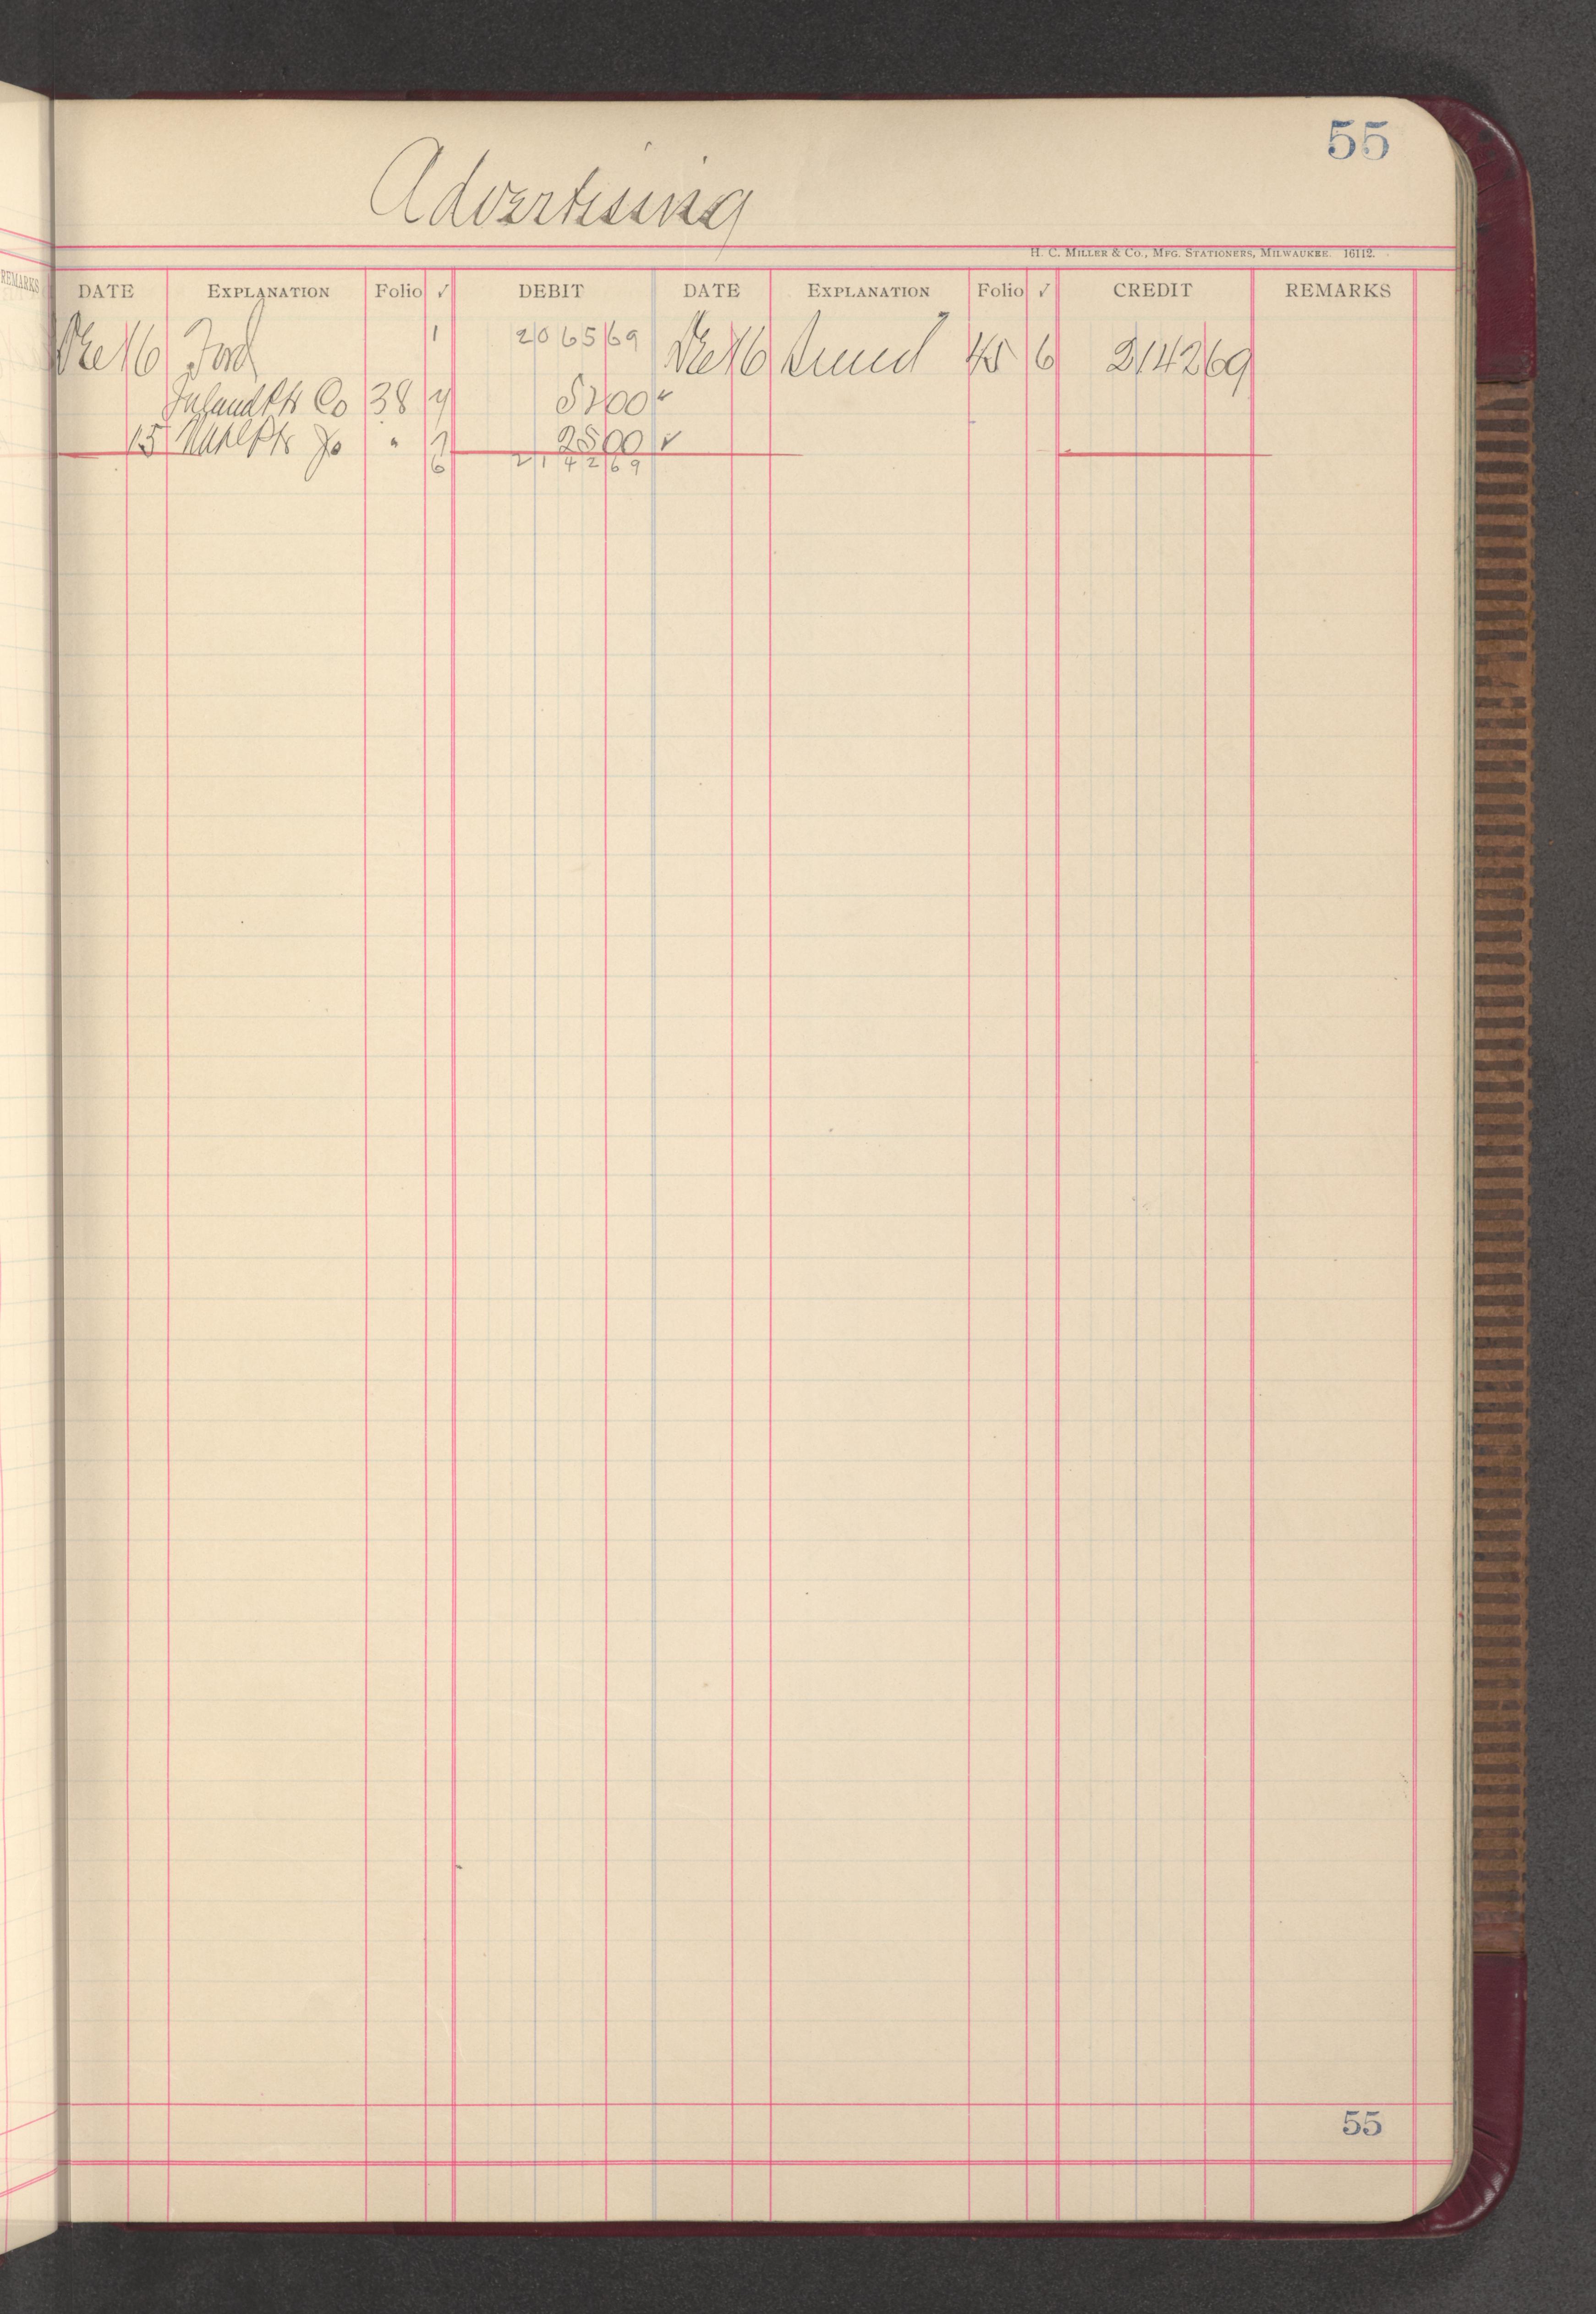 55
Advertising
H. C. MILLER & CO., MFG. STATIONERS, MILWAUKEE. 16112.
REMARKS
DATE EXPLANATION Folio ✓ DEBIT DATE EXPLANATION Folio ✓ CREDIT REMARKS
Dec 16 Ford 1 2065 69 Dec 16 45 6 2142 69
Inland Co 38 4 52 00 ✓
15 " 7 25 00 ✓
6 2142 69
55